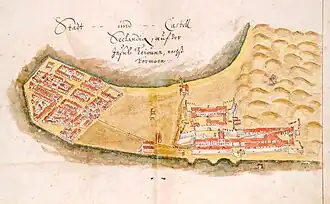 Stadt und Castell
Seelandia, auf der
Insul Teiouan, nechst
Formosa